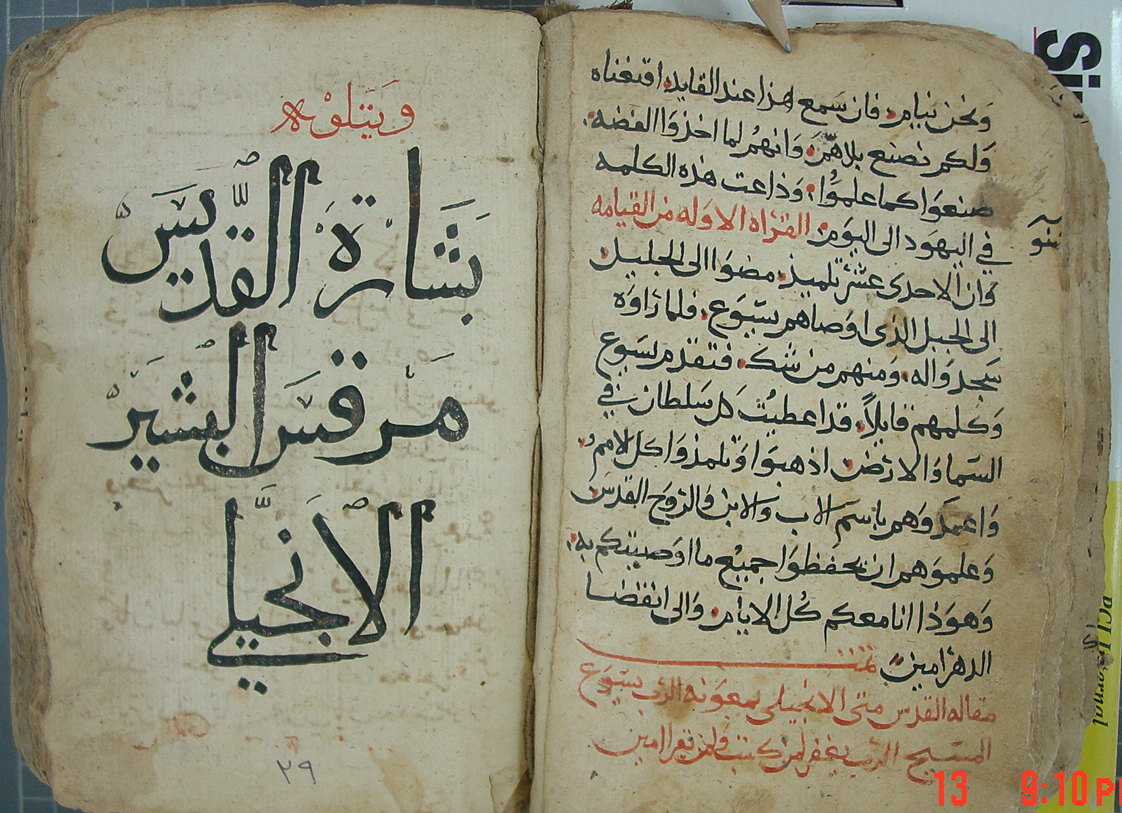 ونحن نيام. فان سمع هذا عند القايد. اقنعناه
ولكم نصنع بلاهم. وانهم لما اخذوا الفضه.
صنعوا كما علموا. وذاعت هذه الكلمه
في اليهود الى اليوم. القراه الاوله من القيامه
وان الاحدى عشر تلميذ. مضوا الى الجليل.
الى الجبل الذى اوصاهم يسوع. فلما راوه
سجدوا له. ومنهم من شك. فتقدم يسوع
وكلمهم قايلاً. قد اعطيت كل سلطان في
السما والارض. اذهبوا وتلمذوا كل الامم.
واعمدوهم باسم الاب والابن والروح القدس
وعلموهم ان يحفظوا جميع ما اوصيتكم به.
وهوذا انا معكم كل الايام. والى انقضا
الدهر امين
مقاله القدس متى الانجيلى بمعونه الرب يسوع
المسيح الرب يغفر لمن كتب ولمن قرا امين
ويتلوه
بشارة القديس
مرقس البشير
الانجيلي
٢٩
13 9:10